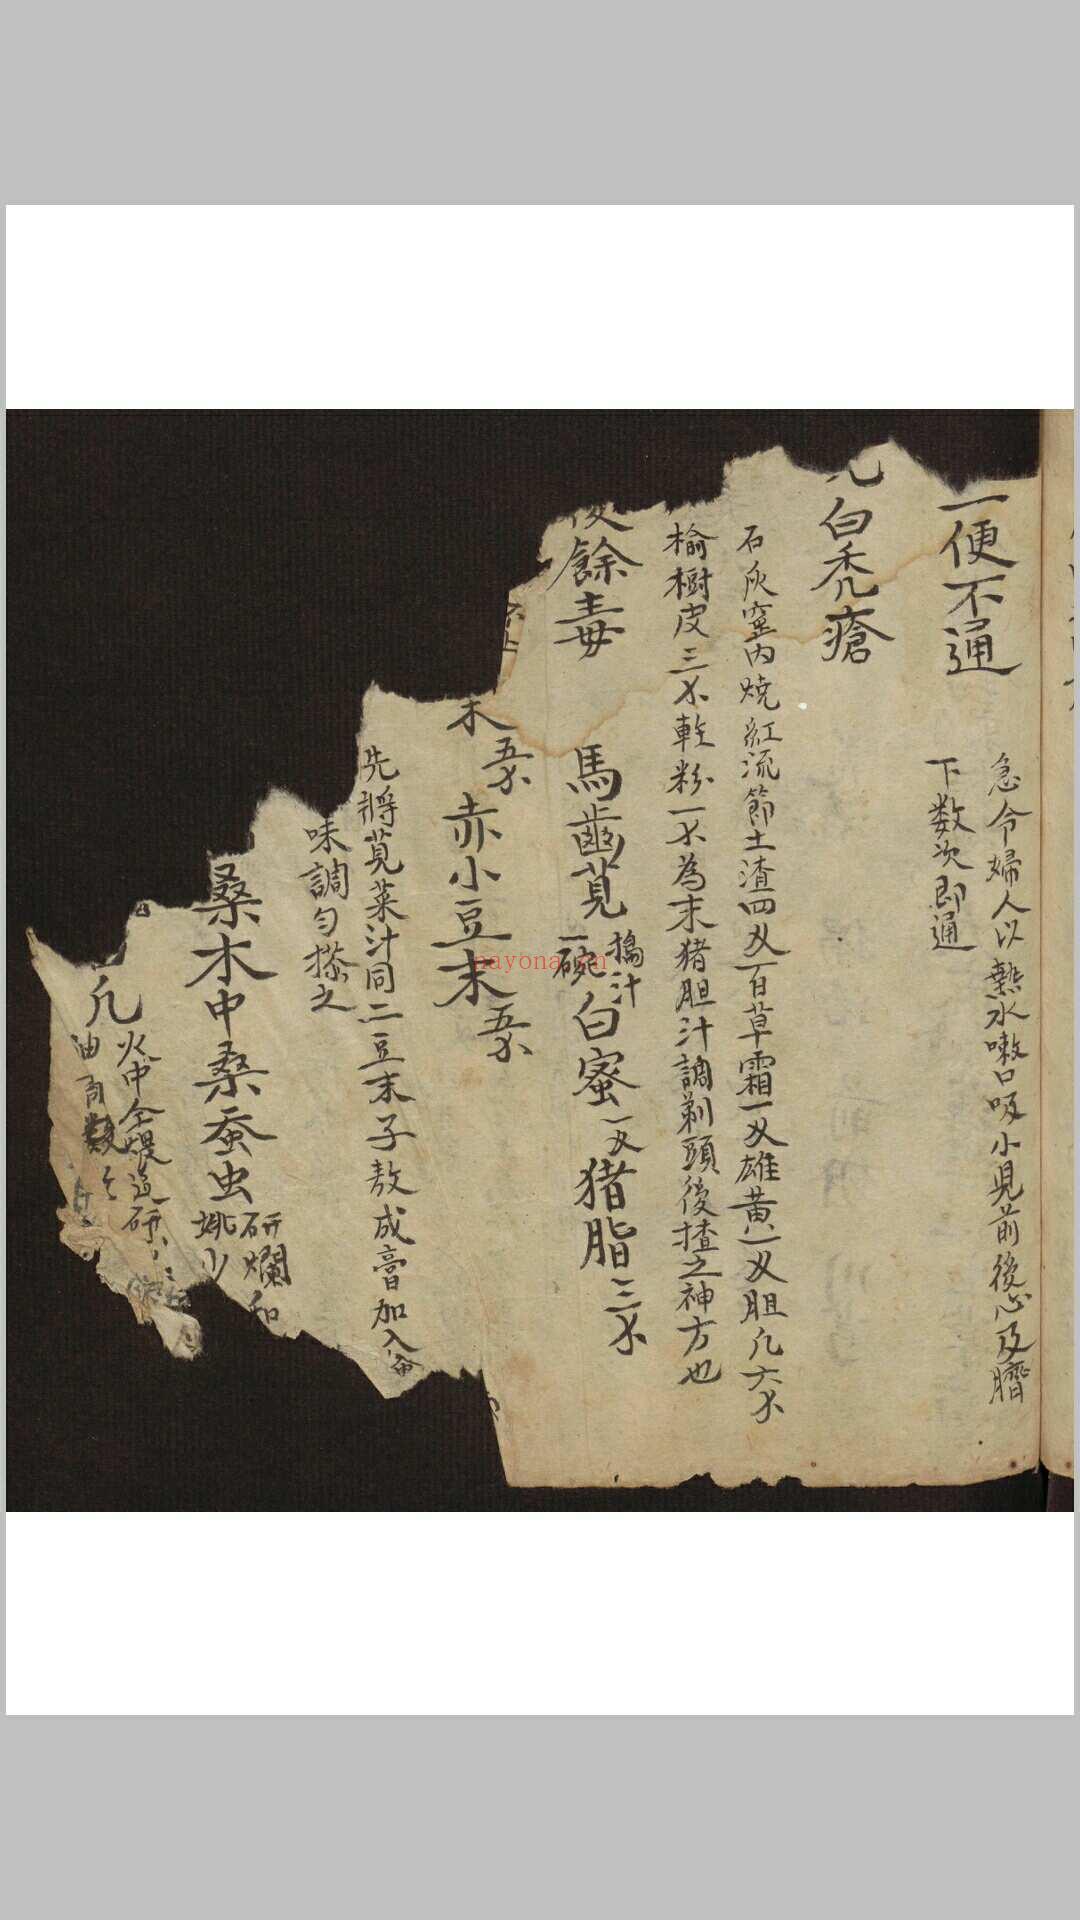 一便不通
急令婦人以熱水嗽口吸小児前後心及臍
下数次即通
白禿瘡
石灰窰内燒紅流節土渣四又百草霜一又雄黄一又胆凡六不
榆樹皮三不軽粉一不為末猪胆汁調剃頭後搽之神方也
餘毒 馬齒莧 搗汁一碗 白蜜一又 猪脂三不
末 五不 赤小豆末 五不
先將莧菜汁同二豆末子敖成膏加入
味調匀搽之
桑木中桑蚕虫 研爛和
凡 火中全煨
油
nayona.cn